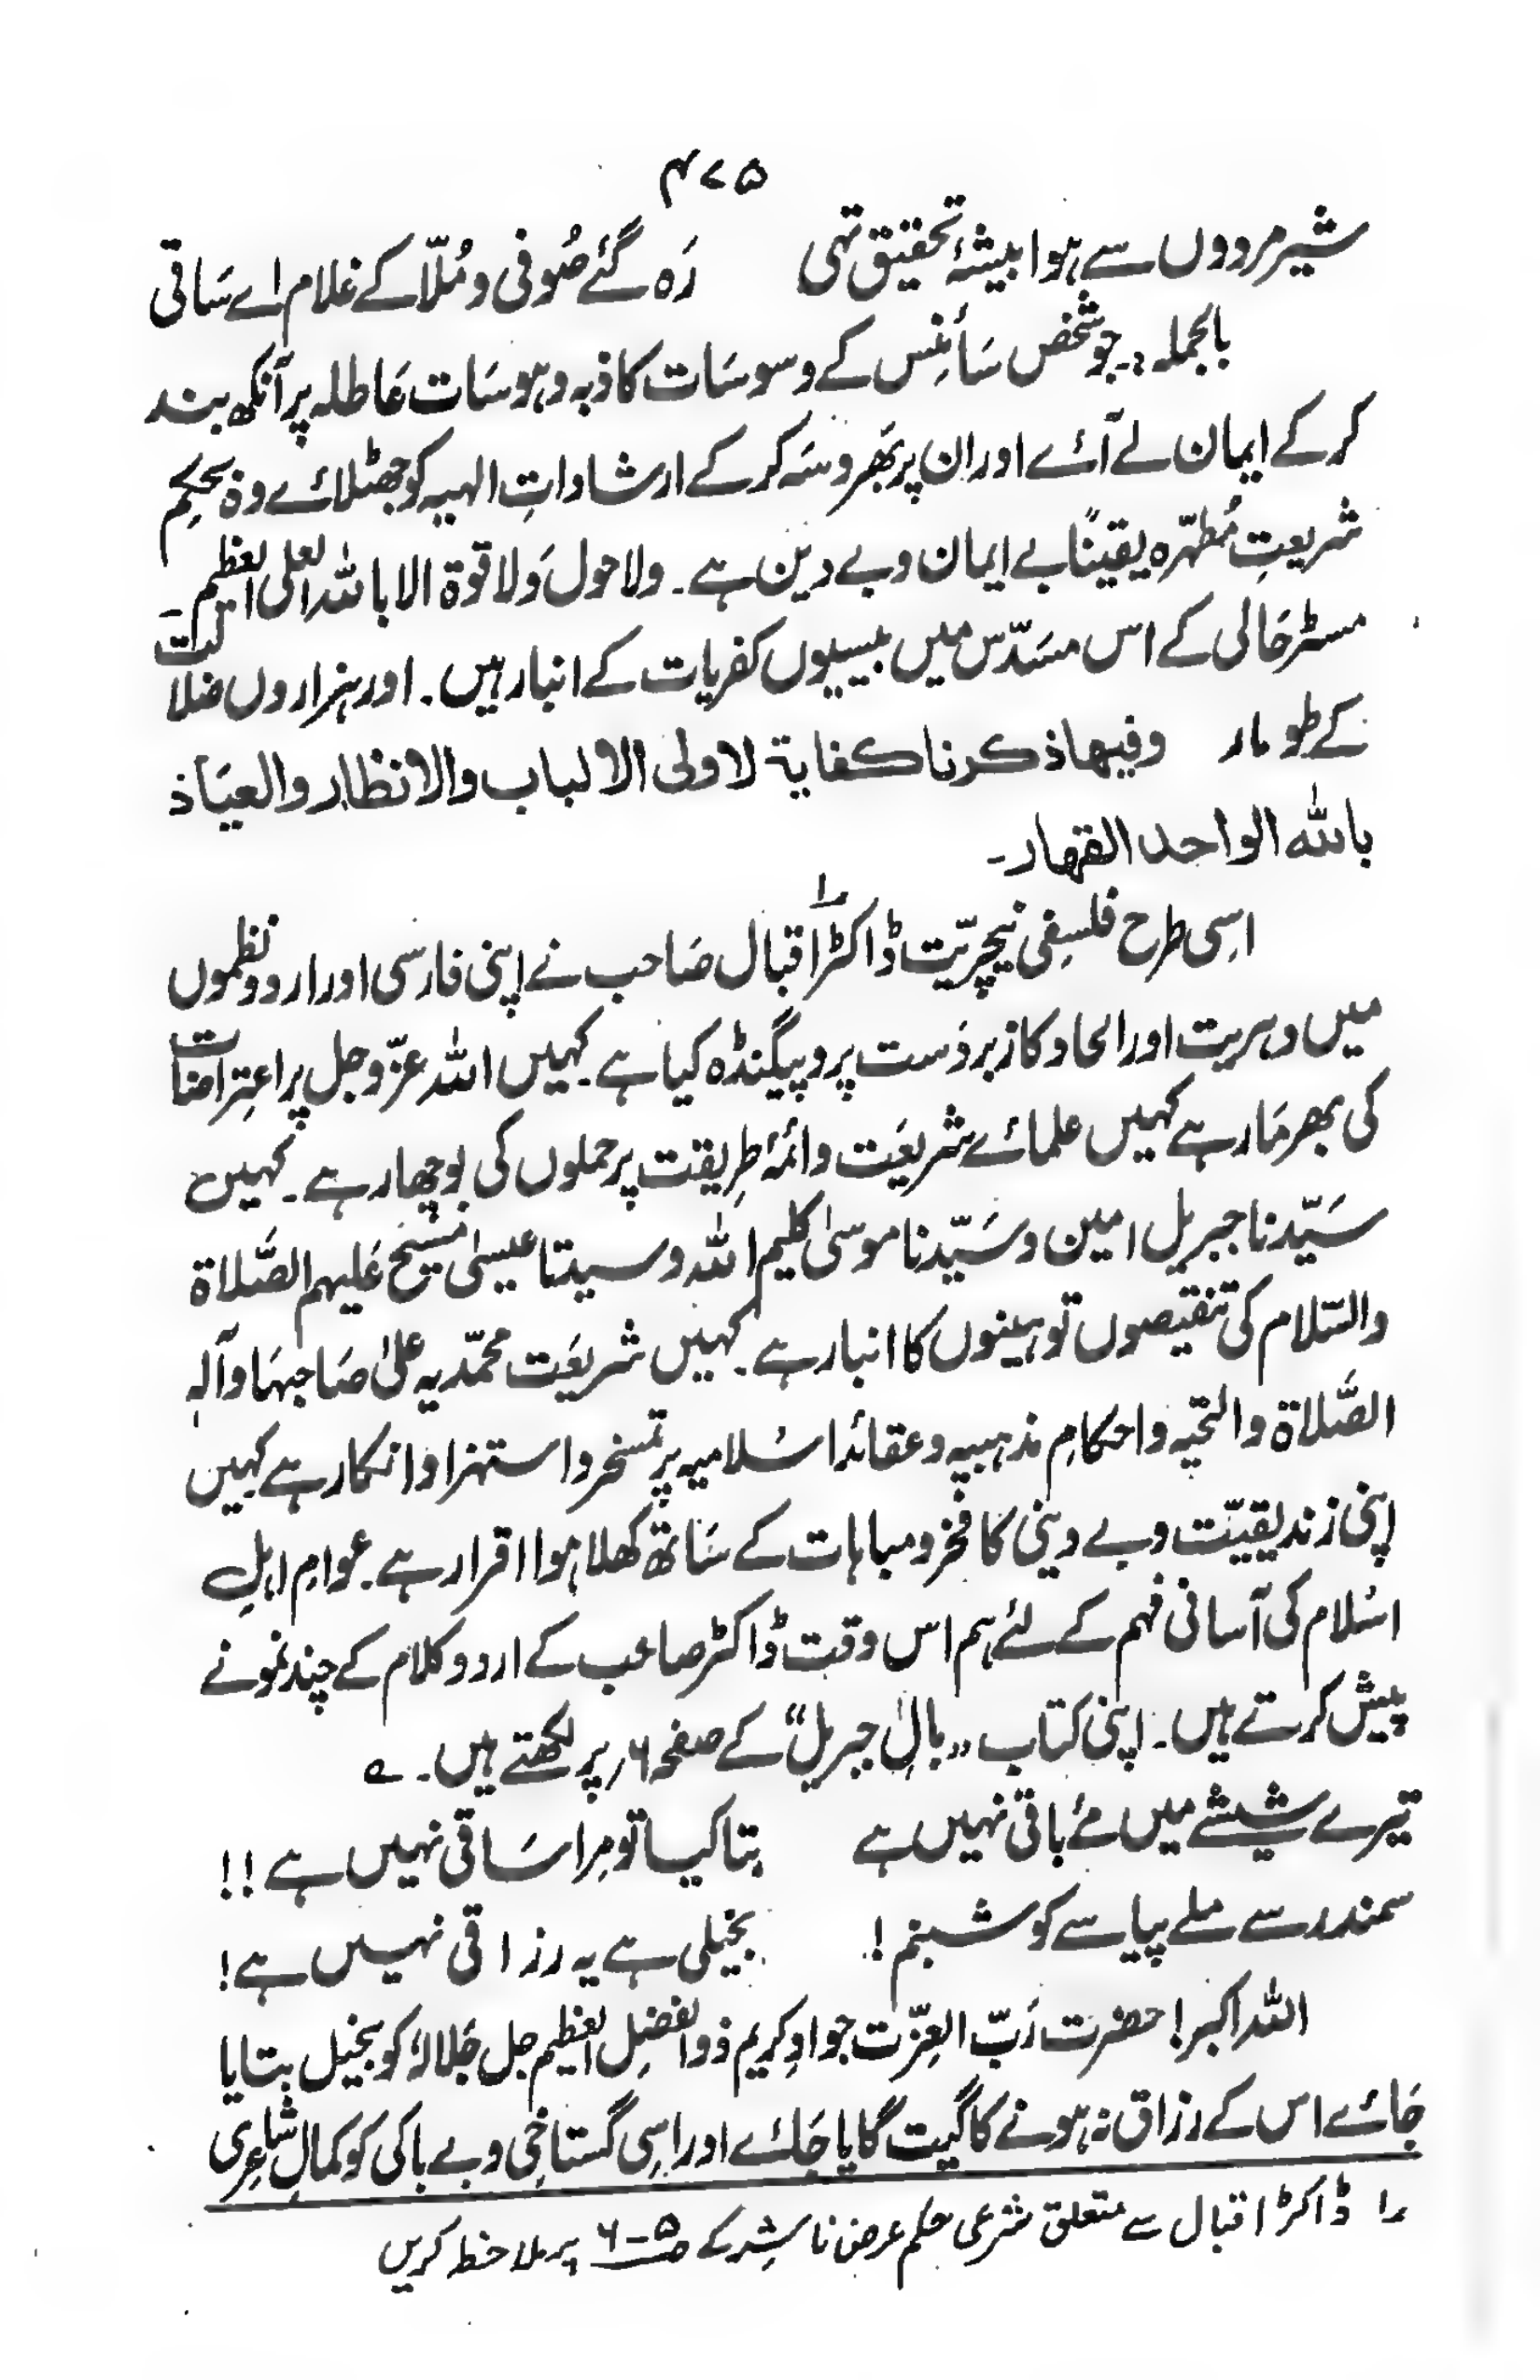 ۴۷۵
شیر مردوں سے ہوا بیشۂ تحقیق تہی رَہ گئے صُوفی و مُلّا کے غلام اے سَاقی
بالجملہ :۔ جو شخص سَائنِس کے وسوسَات کاذبہ وہوسَات عَاطلہ پر آنکھ بند
کر کے ایمان لے آئے اور ان پر بھَروسَہ کر کے ارشاداتِ الہیہ کو جھٹلائے وہ بحکِم
شریعتِ مُطہّرہ یقینًا بے ایمان و بے دین ہے۔ ولا حول وَلا قوۃ الا باللہ العلی العظیم۔
مسٹر حَالی کے اس مسَدّس میں بیسیوں کفریات کے انبار ہیں۔ اور ہزاروں ضلالت
کے طومار وفیہا ذکرنا کفایۃ لاولی الالباب والانظار والعیَاذ
باللہ الواحد القہار۔
اسِی طرح فلسِفی نیچریّت ڈاکٹر اقبال صَاحب نے اپنی فارسی اور اردو نظموں ۱؎
میں دہریت اور الحاد کا زبردَست پروپیگنڈہ کیا ہے۔ کہیں اللہ عزّوجل پر اعتِراضات
کی بھرمَار ہے کہیں علمائے شریعَت وائمۂ طِریقت پر حملوں کی بوچھار ہے۔ کہیں
سَیّدنا جبریل امین وسَیّدنا موسیٰ کلیم اللہ وسیدنا عیسیٰ مسیح عَلیہم الصَّلاۃ
والسّلام کی تنقیصوں توہینوں کا انبار ہے۔ کہیں شریعَت محمّدیہ علیٰ صَاحبہَا وآلہٖ
الصَّلاۃ والتحیّہ واحکامِ مذہبیہ وعقائد اسْلامیہ پر تمسخر واستہزا وانکار ہے کہیں
اپنی زندیقیّت وبے دینی کا فخر ومباہات کے سَاتھ کھلا ہوا اقرار ہے۔ عوامِ اہلِ
اسْلام کی آسانی فہم کے لئے ہم اس وقت ڈاکٹر صاحب کے اردو کلام کے چند نمونے
پیش کرتے ہیں۔ اپنی کتاب ”بالِ جبریل“ کے صفحہ ۶ پر لکھتے ہیں۔ ؎
تیرے شیشے میں مئے باقی نہیں ہے بتا کیا تو مِرا سَاقی نہیں ہے !!
سمندر سے ملے پیاسے کو شبنم ! بخیلی ہے یہ رزاقی نہیں ہے!
اللہ اکبر! حضرت رَبّ العِزّت جوادِ کریم ذوالفضلِ العظیم جل جَلالہٗ کو بخیل بتایا
جَائے اس کے رزاق نہ ہونے کا گیت گایا جَائے اور اسِی گستاخی و بے باکی کو کمالِ شاعِری
۱؎ ڈاکٹر اقبال سے متعلق شرعی حکم عرض ناشِر کے صـ ۵-۶ پر ملاحظہ کریں